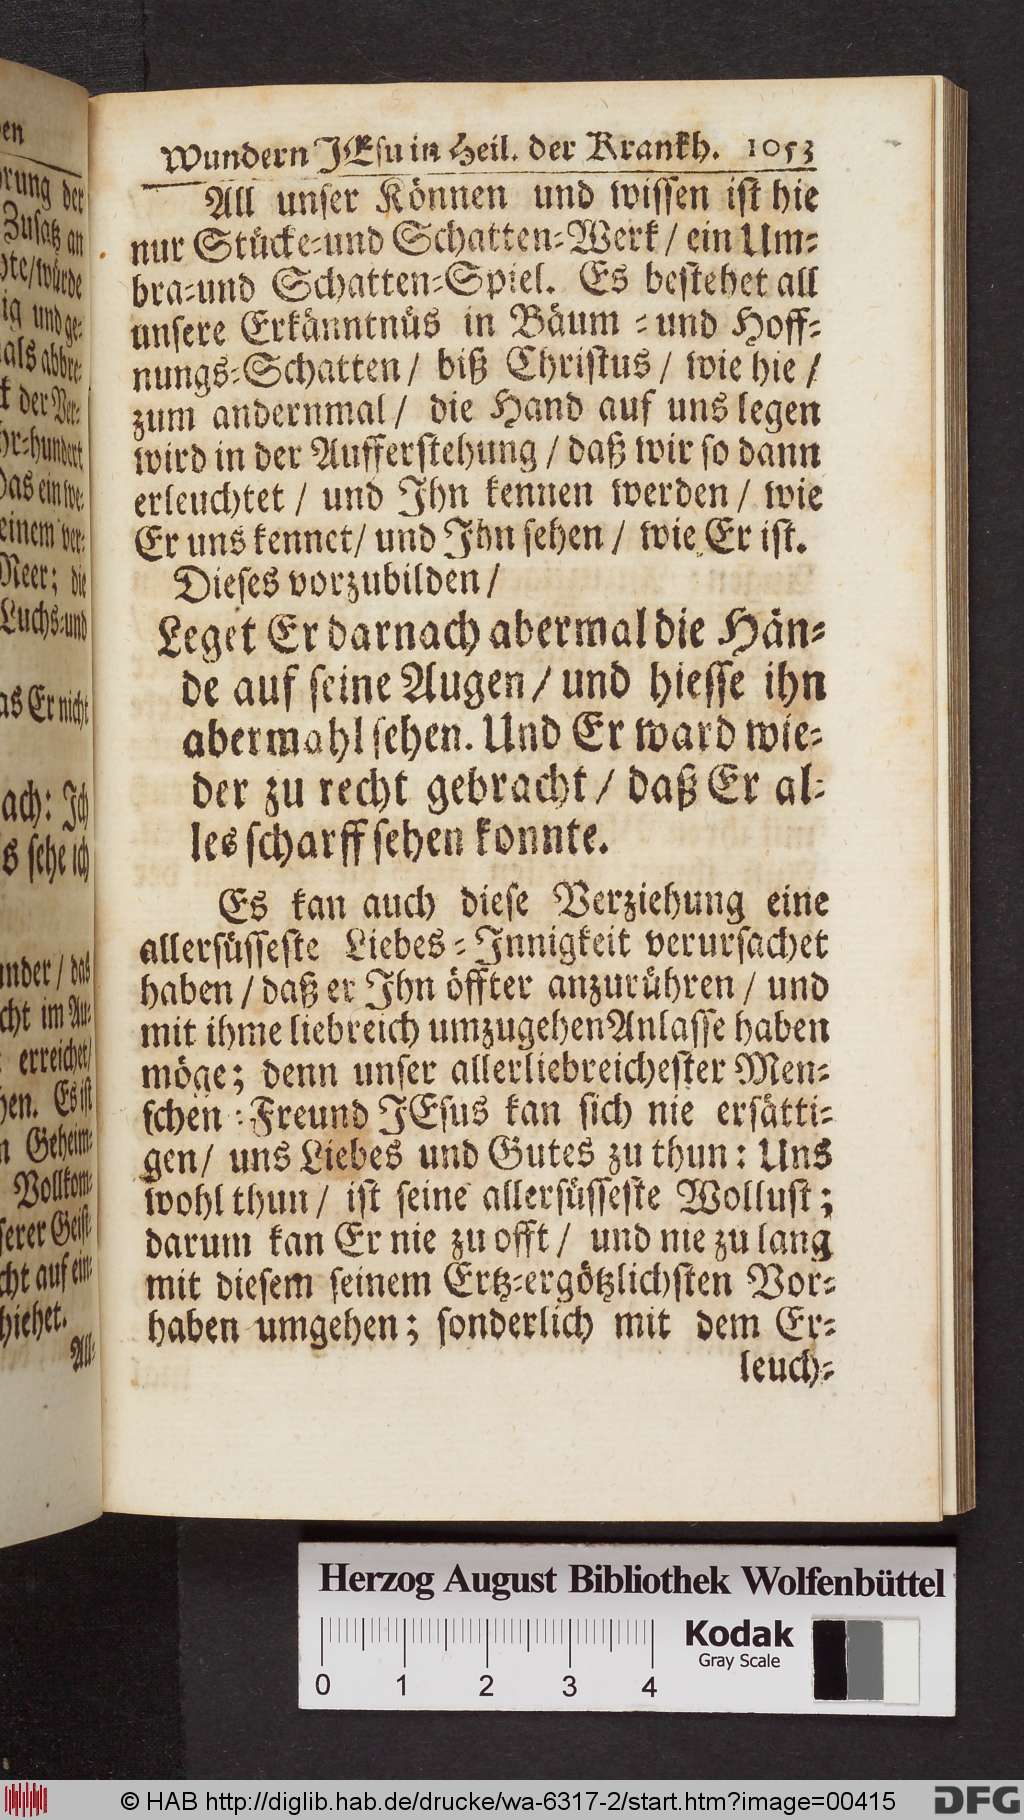 en
rung der
Zusatz an
te/würde
ig und ge-
als abbre-
k der Ver-
hr-hundert
Das ein we-
einem ver-
Meer; die
Luchs-und
as Er nicht
ach: Ich
s sehe ich
nder/das
cht im Au-
erreichet/
hen. Es ist
n Geheim-
Vollkom-
serer Geist
cht auf ein-
hiehet.
All-
Wundern JEsu in Heil. der Krankh. 1053
All unser Können und wissen ist hie
nur Stücke-und Schatten-Werk/ ein Um-
bra-und Schatten-Spiel. Es bestehet all
unsere Erkänntnüs in Bäum-und Hoff-
nungs-Schatten/ biß Christus/ wie hie/
zum andernmal/ die Hand auf uns legen
wird in der Aufferstehung/ daß wir so dann
erleuchtet/ und Ihn kennen werden/ wie
Er uns kennet/ und Ihn sehen/ wie Er ist.
Dieses vorzubilden/
Leget Er darnach abermal die Hän-
de auf seine Augen/ und hiesse ihn
abermahl sehen. Und Er ward wie-
der zu recht gebracht/ daß Er al-
les scharff sehen konnte.
Es kan auch diese Verziehung eine
allersüsseste Liebes-Innigkeit verursachet
haben/ daß er Ihn öffter anzurühren/ und
mit ihme liebreich umzugehen Anlasse haben
möge; denn unser allerliebreichester Men-
schen-Freund JEsus kan sich nie ersätti-
gen/ uns Liebes und Gutes zu thun: Uns
wohl thun/ ist seine allersüsseste Wollust;
darum kan Er nie zu offt/ und nie zu lang
mit diesem seinem Ertz-ergötzlichsten Vor-
haben umgehen; sonderlich mit dem Er-
leuch-
Herzog August Bibliothek Wolfenbüttel
Kodak
Gray Scale
0 1 2 3 4
© HAB http://diglib.hab.de/drucke/wa-6317-2/start.htm?image=00415
DFG